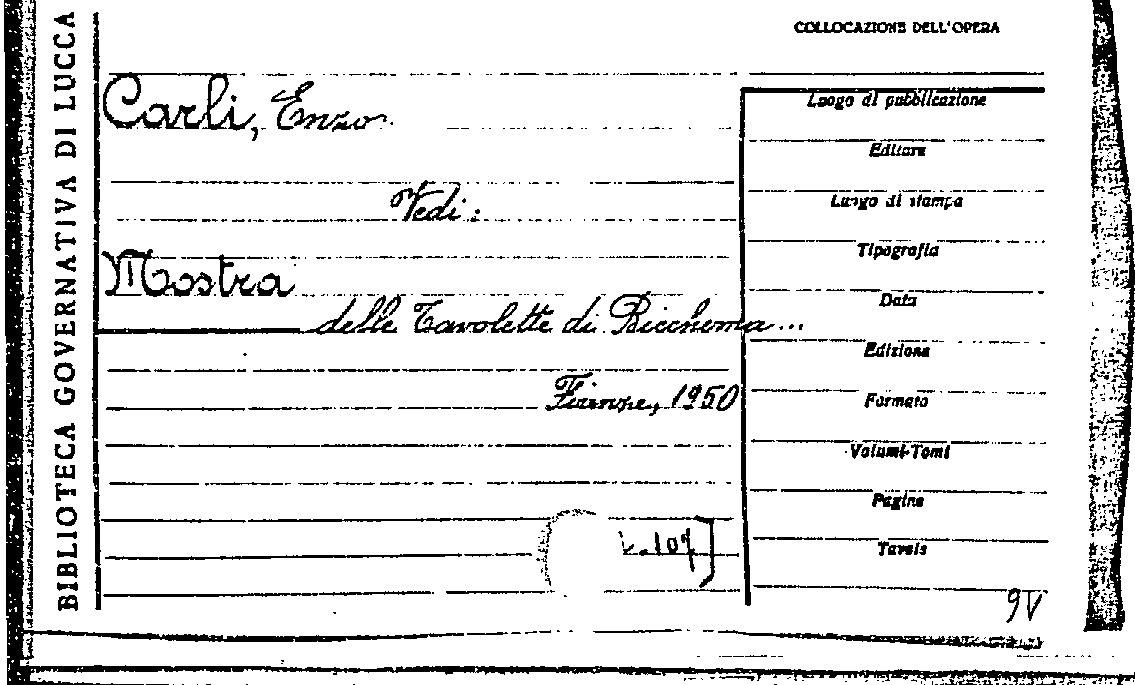 BIBLIOTECA GOVERNATIVA DI LUCCA
COLLOCAZIONE DELL'OPERA
Carli, Enzo
Vedi:
Mostra
delle Tavolette di Biccherna...
Firenze, 1950
Luogo di pubblicazione
Editore
Luogo di stampa
Tipografia
Data
Edizione
Formato
Volumi-Tomi
Pagine
Tavole